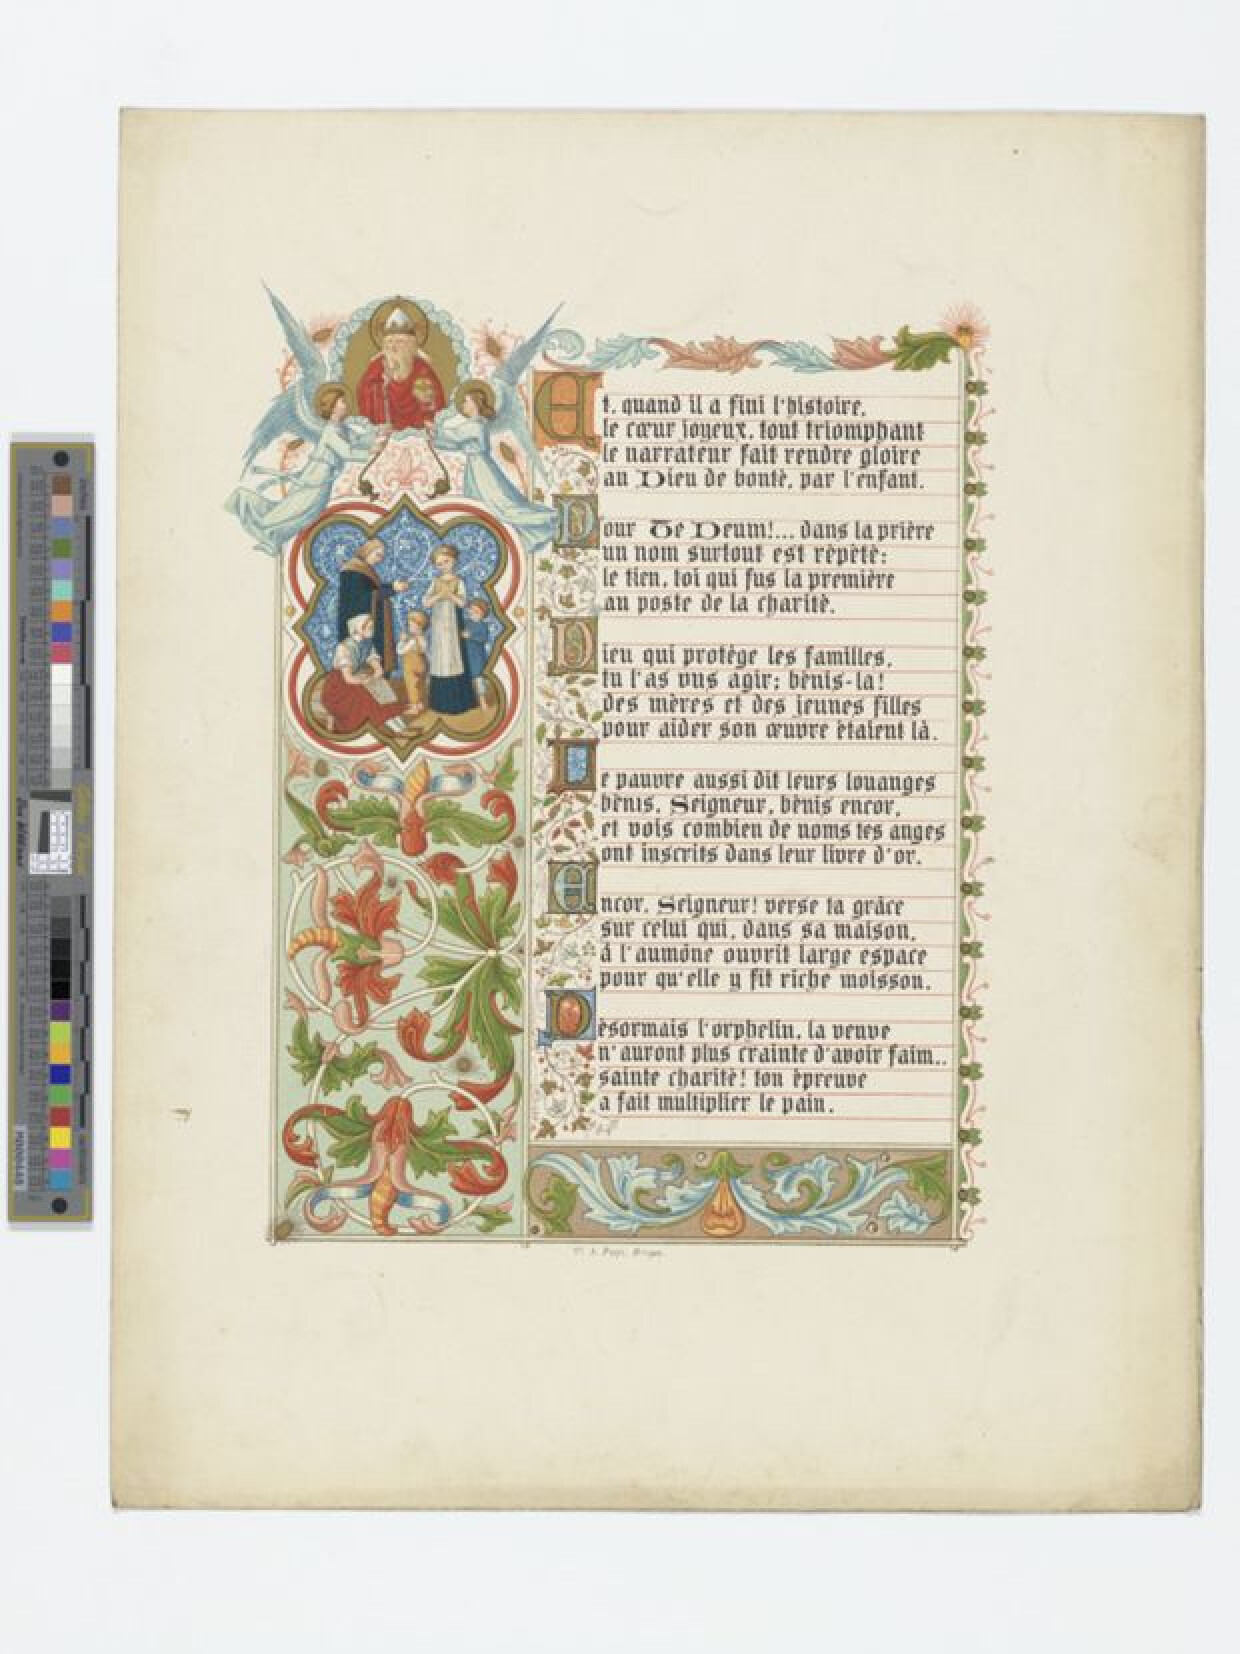 Et, quand il a fini l'histoire,
le cœur joyeux, tout triomphant
le narrateur fait rendre gloire
au Dieu de bonté, par l'enfant.
Pour Te Deum!... dans la prière
un nom surtout est répété:
le tien, toi qui fus la première
au poste de la charité.
Dieu qui protége les familles,
tu l'as vus agir; bénis-la!
des mères et des jeunes filles
pour aider son œuvre étaient là.
Le pauvre aussi dit leurs louanges
bénis, Seigneur, bénis encor,
et vois combien de noms tes anges
ont inscrits dans leur livre d'or.
Encor, Seigneur! verse ta grâce
sur celui qui, dans sa maison,
à l'aumône ouvrit large espace
pour qu'elle y fit riche moisson.
Désormais l'orphelin, la veuve
n'auront plus crainte d'avoir faim..
sainte charité! ton épreuve
a fait multiplier le pain.